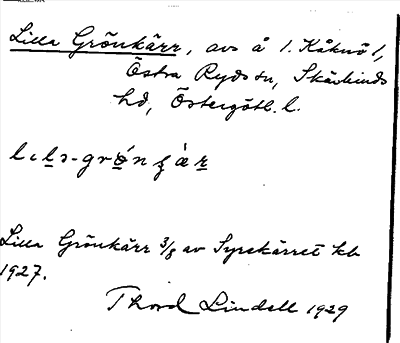 Lilla Grönkärr, avs å 1. Kåknö 1,
Östra Ryds sn, Skärkinds
hd, Östergötl. l.
Lilla Grönkärr 3/8 av Syrekärret kb
1927.
Thord Lindell 1929